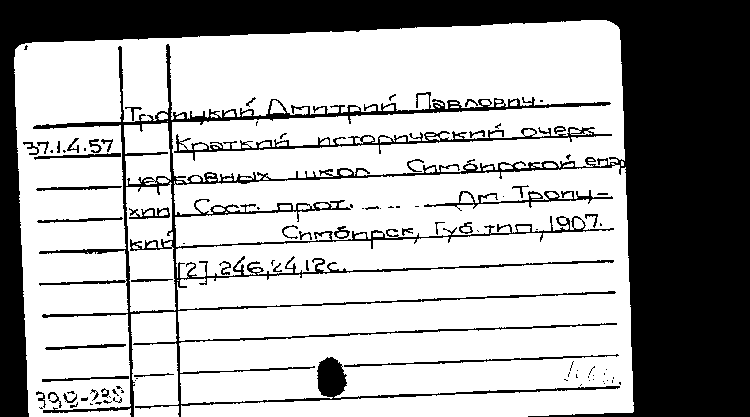 Троицкий, Дмитрий Павлович.
37.1.4.57 Краткий исторический очерк
церковных школ Симбирской епар
хии. Сост. прот. .... Дм. Троиц-
кий Симбирск, Губ. тип., 1907.
[2], 246, 24, 12 с.
399-238